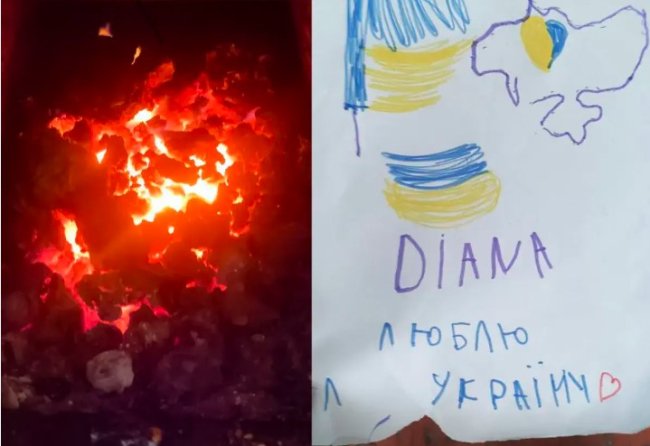 DiANA
ЛЮБЛЮ
УКРАЇНУ♡